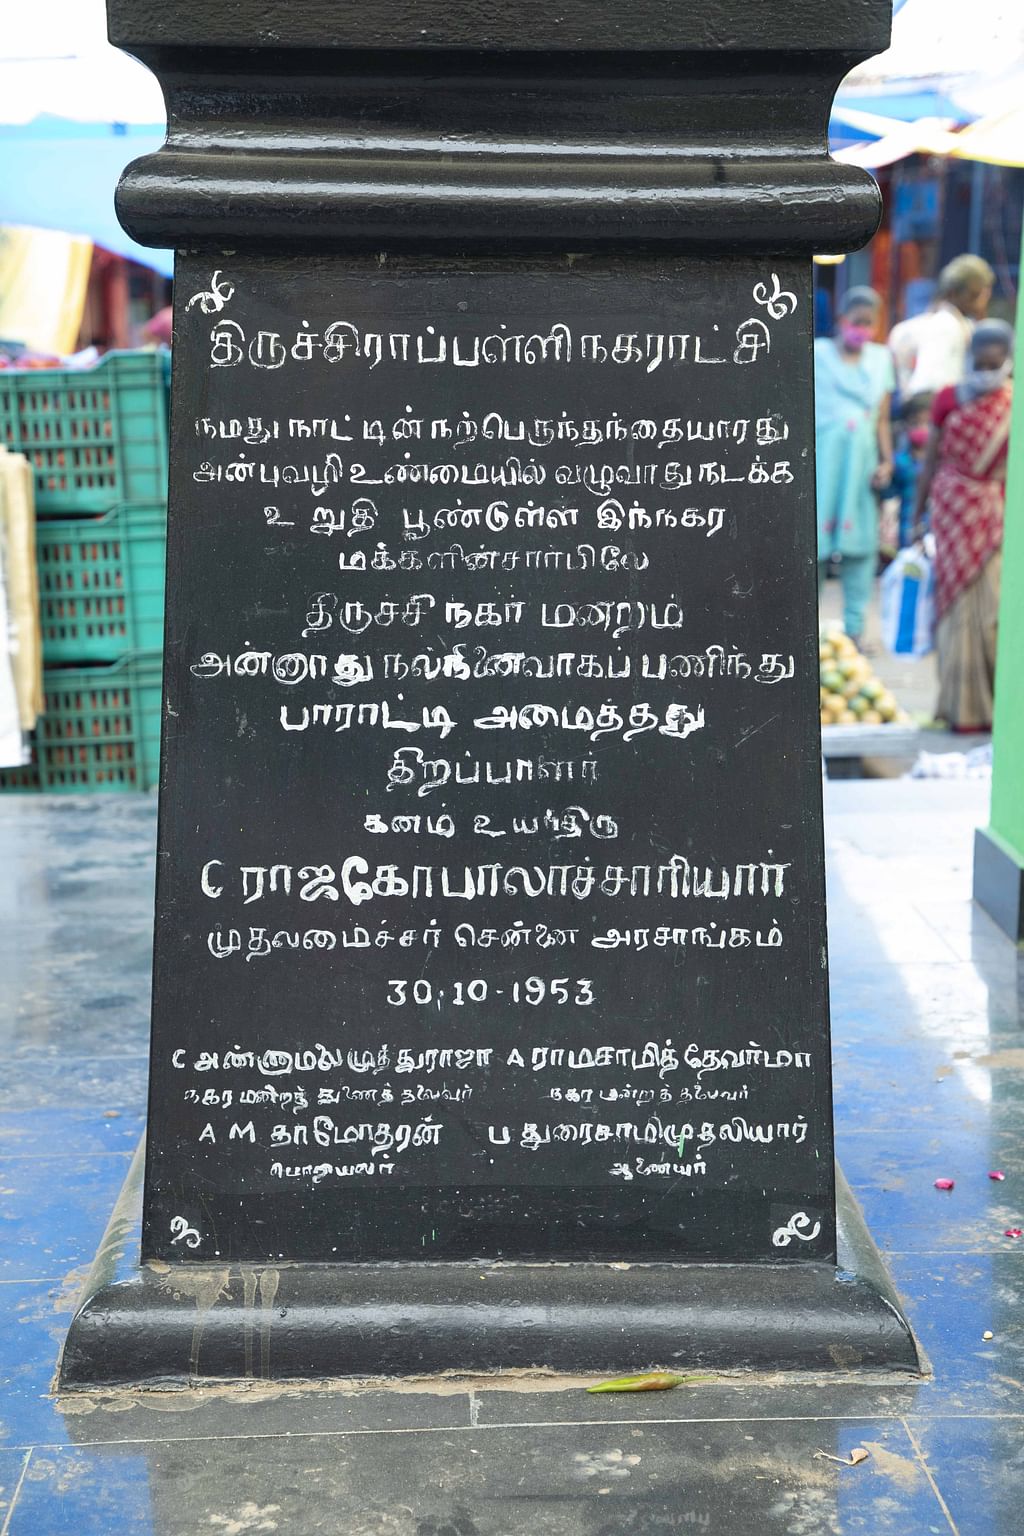 திருச்சிராப்பள்ளி நகராட்சி
நமது நாட்டின் நற்பெருந்தந்தையாரது
அன்புவழி உண்மையில் வழுவாது நடக்க
உறுதி பூண்டுள்ள இந்நகர
மக்களின் சார்பிலே
திருச்சி நகர் மன்றம்
அன்னாது நல்நினைவாகப் பணிந்து
பாராட்டி அமைத்தது
திறப்பாளர்
கனம் உயர்திரு
C ராஜகோபாலாச்சாரியார்
முதலமைச்சர் சென்னை அரசாங்கம்
30.10-1953
C அண்ணாமலைமுத்துராஜா A ராமசாமித்தேவர்மா
நகர மன்றத் துணைத் தலைவர் நகர மன்றத் தலைவர்
A M தாமோதரன் ப துரைசாமிமுதலியார்
பொறியலர் ஆணையர்